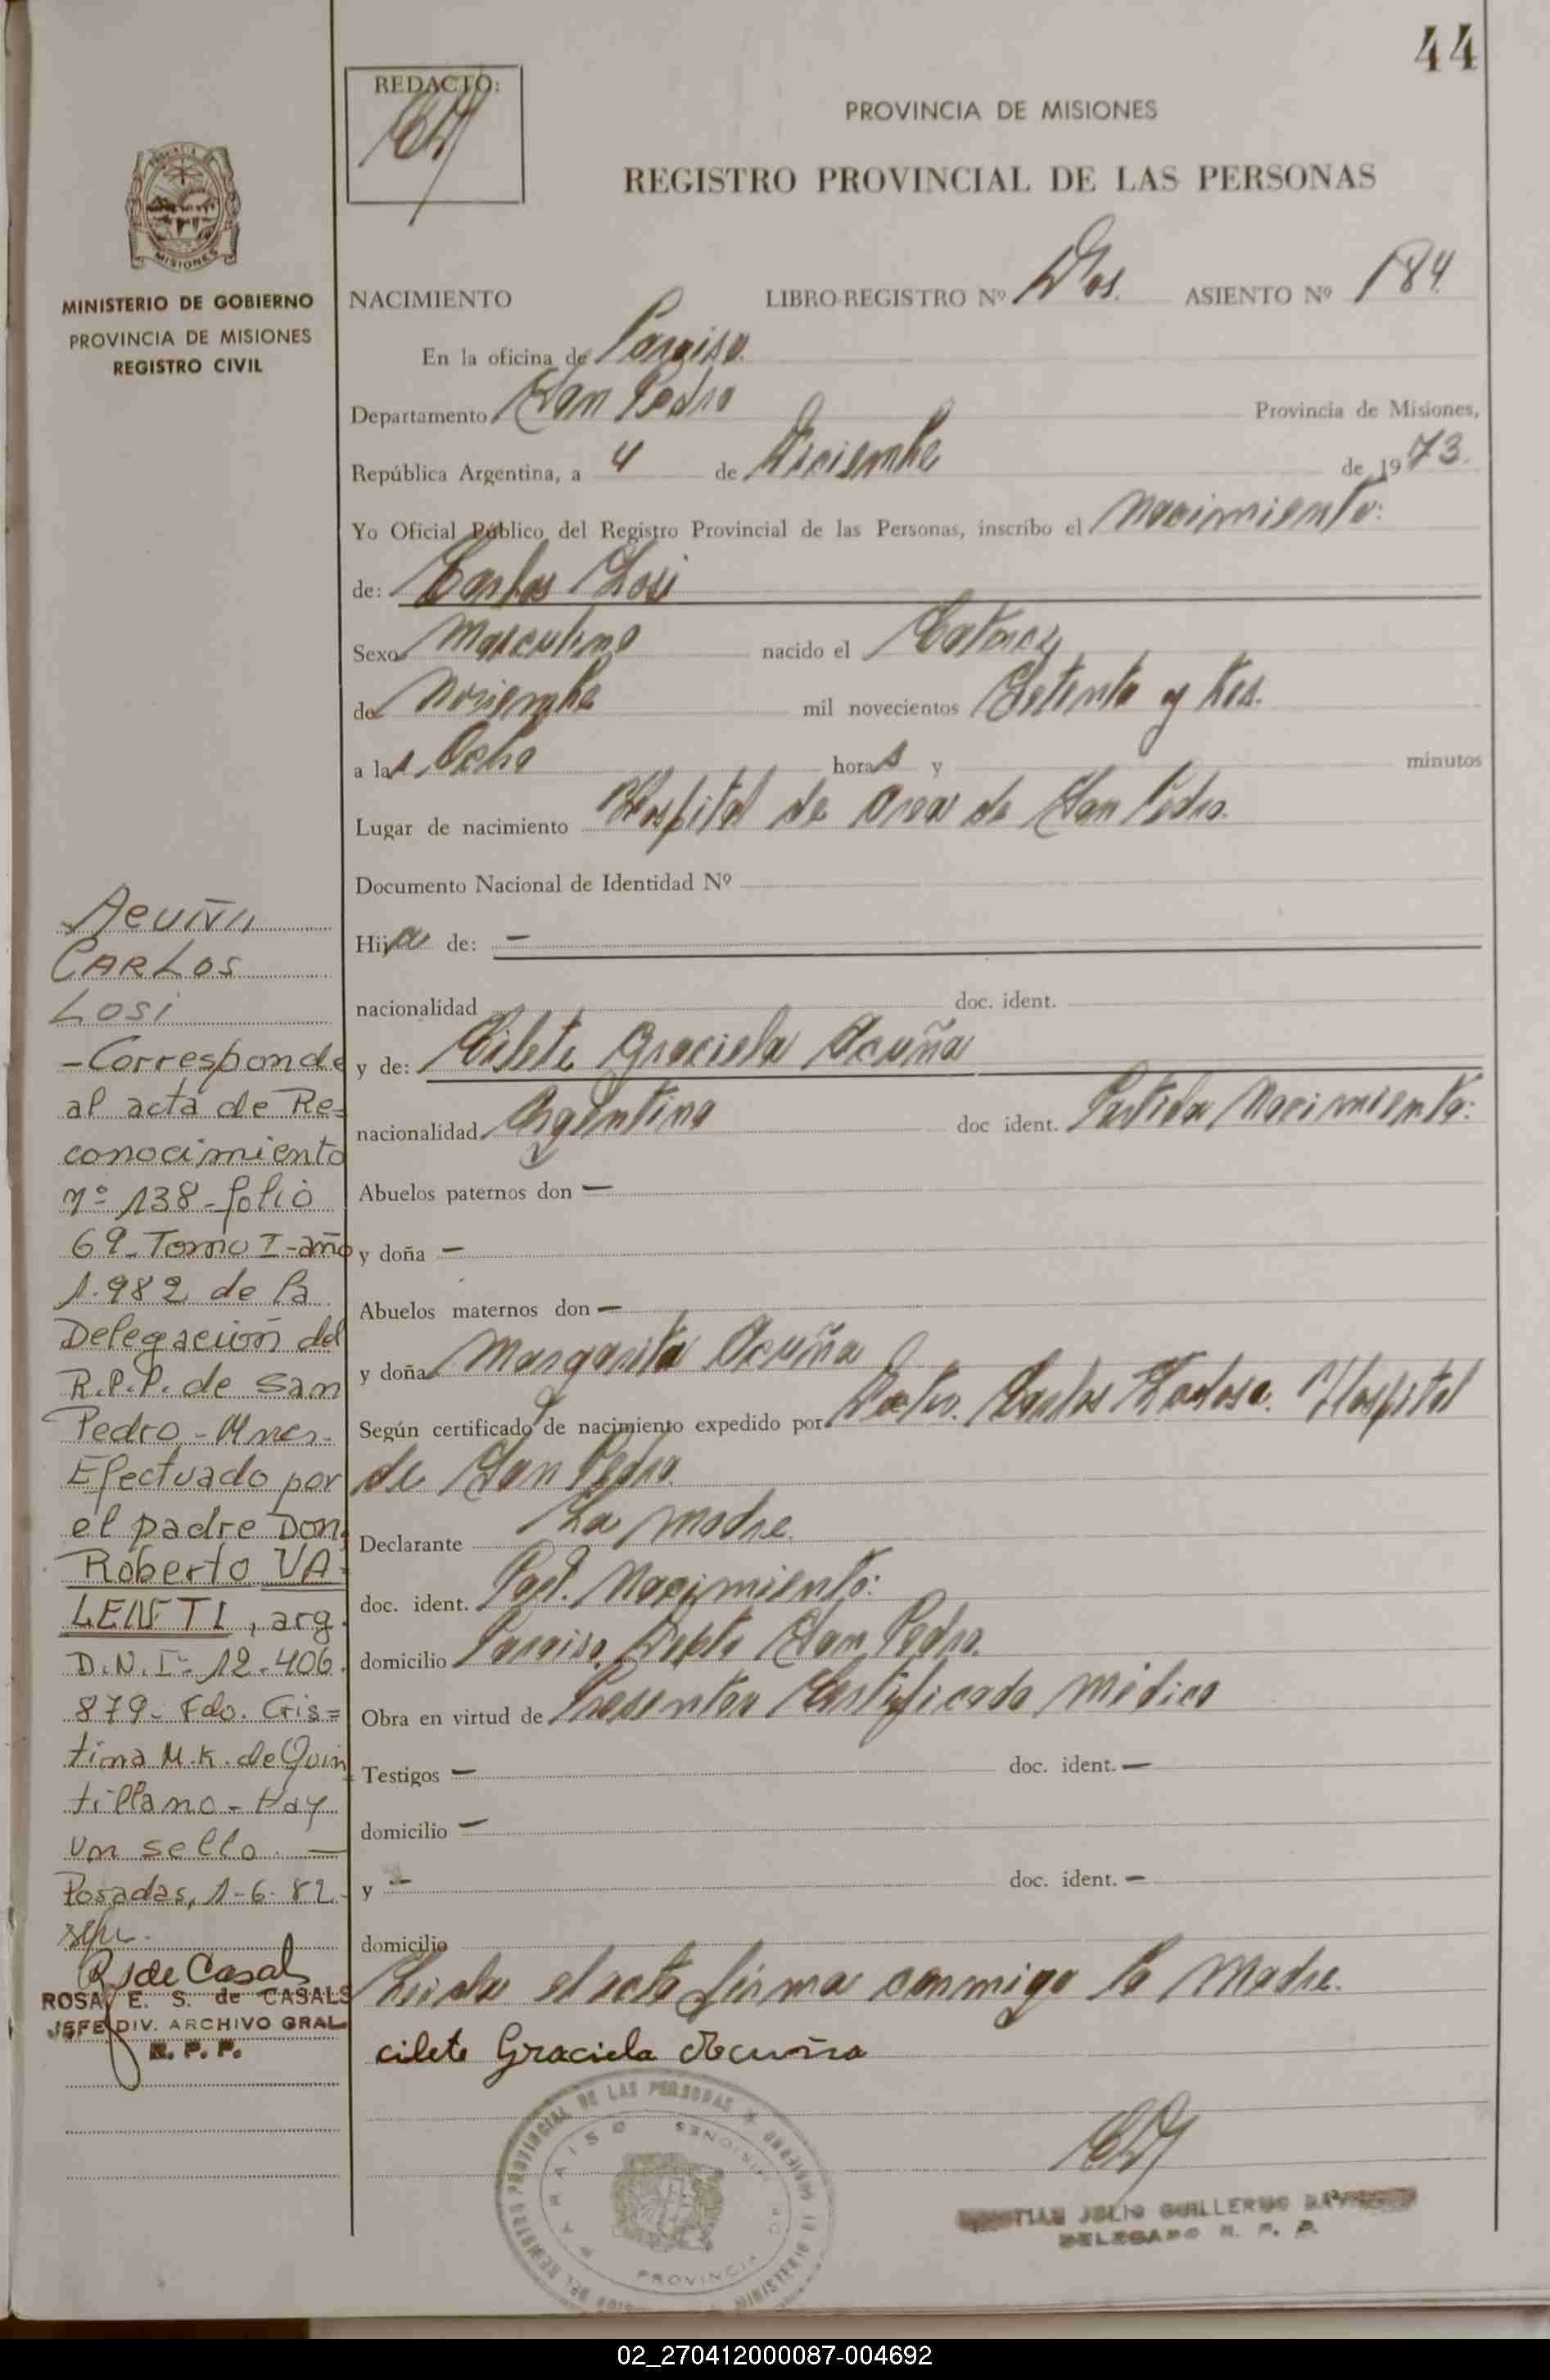 44
REDACTO:
PROVINCIA DE MISIONES
REGISTRO PROVINCIAL DE LAS PERSONAS
MISIONES
MINISTERIO DE GOBIERNO
PROVINCIA DE MISIONES
REGISTRO CIVIL
NACIMIENTO LIBRO-REGISTRO Nº Dos. ASIENTO Nº 184
En la oficina de Paraiso.
Departamento San Pedro Provincia de Misiones,
República Argentina, a 4 de Diciembre de 1973.
Yo Oficial Público del Registro Provincial de las Personas, inscribo el Nacimiento:
de: Carlos Losi
Sexo Masculino nacido el Catorce
de Noviembre mil novecientos Setenta y tres.
a las Ocho horas y minutos
Lugar de nacimiento Hospital de Area de San Pedro.
Documento Nacional de Identidad Nº
Hijo de: —
nacionalidad doc. ident.
y de: Cilete Graciela Acuña
nacionalidad Argentina doc ident. Partida Nacimiento:
Abuelos paternos don —
y doña —
Abuelos maternos don —
y doña Margarita Acuña
Según certificado de nacimiento expedido por Doctor. Carlos Hospital
de San Pedro.
Declarante La Madre.
doc. ident. Part. Nacimiento:
domicilio Paraiso, Depto San Pedro.
Obra en virtud de Presentar Certificado Médico
Testigos — doc. ident. —
domicilio —
y — doc. ident. —
domicilio
Leida el acta firma conmigo la Madre.
cilete Graciela Acuña
Acuña
CARLOS
LOSI
-Corresponde
al acta de Re=
conocimiento
nº 138-folio
69-Tomo I-año
1.982 de la
Delegación del
R.P.P. de San
Pedro-Mnes-
Efectuado por
el padre Don
Roberto VA-
LENTI, arg.
D.N.I- 12.406.
879- Fdo. Cris=
tina M.K. de Quin
tillano- Hay
un sello. —
Posadas, 1-6-82.-
R S de Casals
ROSA E. S. de CASALS
JEFE DIV. ARCHIVO GRAL.
R. P. P.
PROVINCIAL DE LAS PERSONAS
PARAISO
MISIONES
PROVINCIA DE
MINISTERIO DE GOBIERNO
JULIO GUILLERMO
DELEGADO R. P. P.
02_270412000087-004692